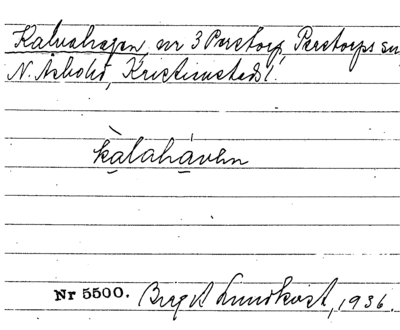 Kalvahagen, nr 3 Perstorp, Perstorps sn,
N. Åsbo hd, Kristianstads l.
kàlaháven
Nr 5500. Birgit Lundkvist, 1936.